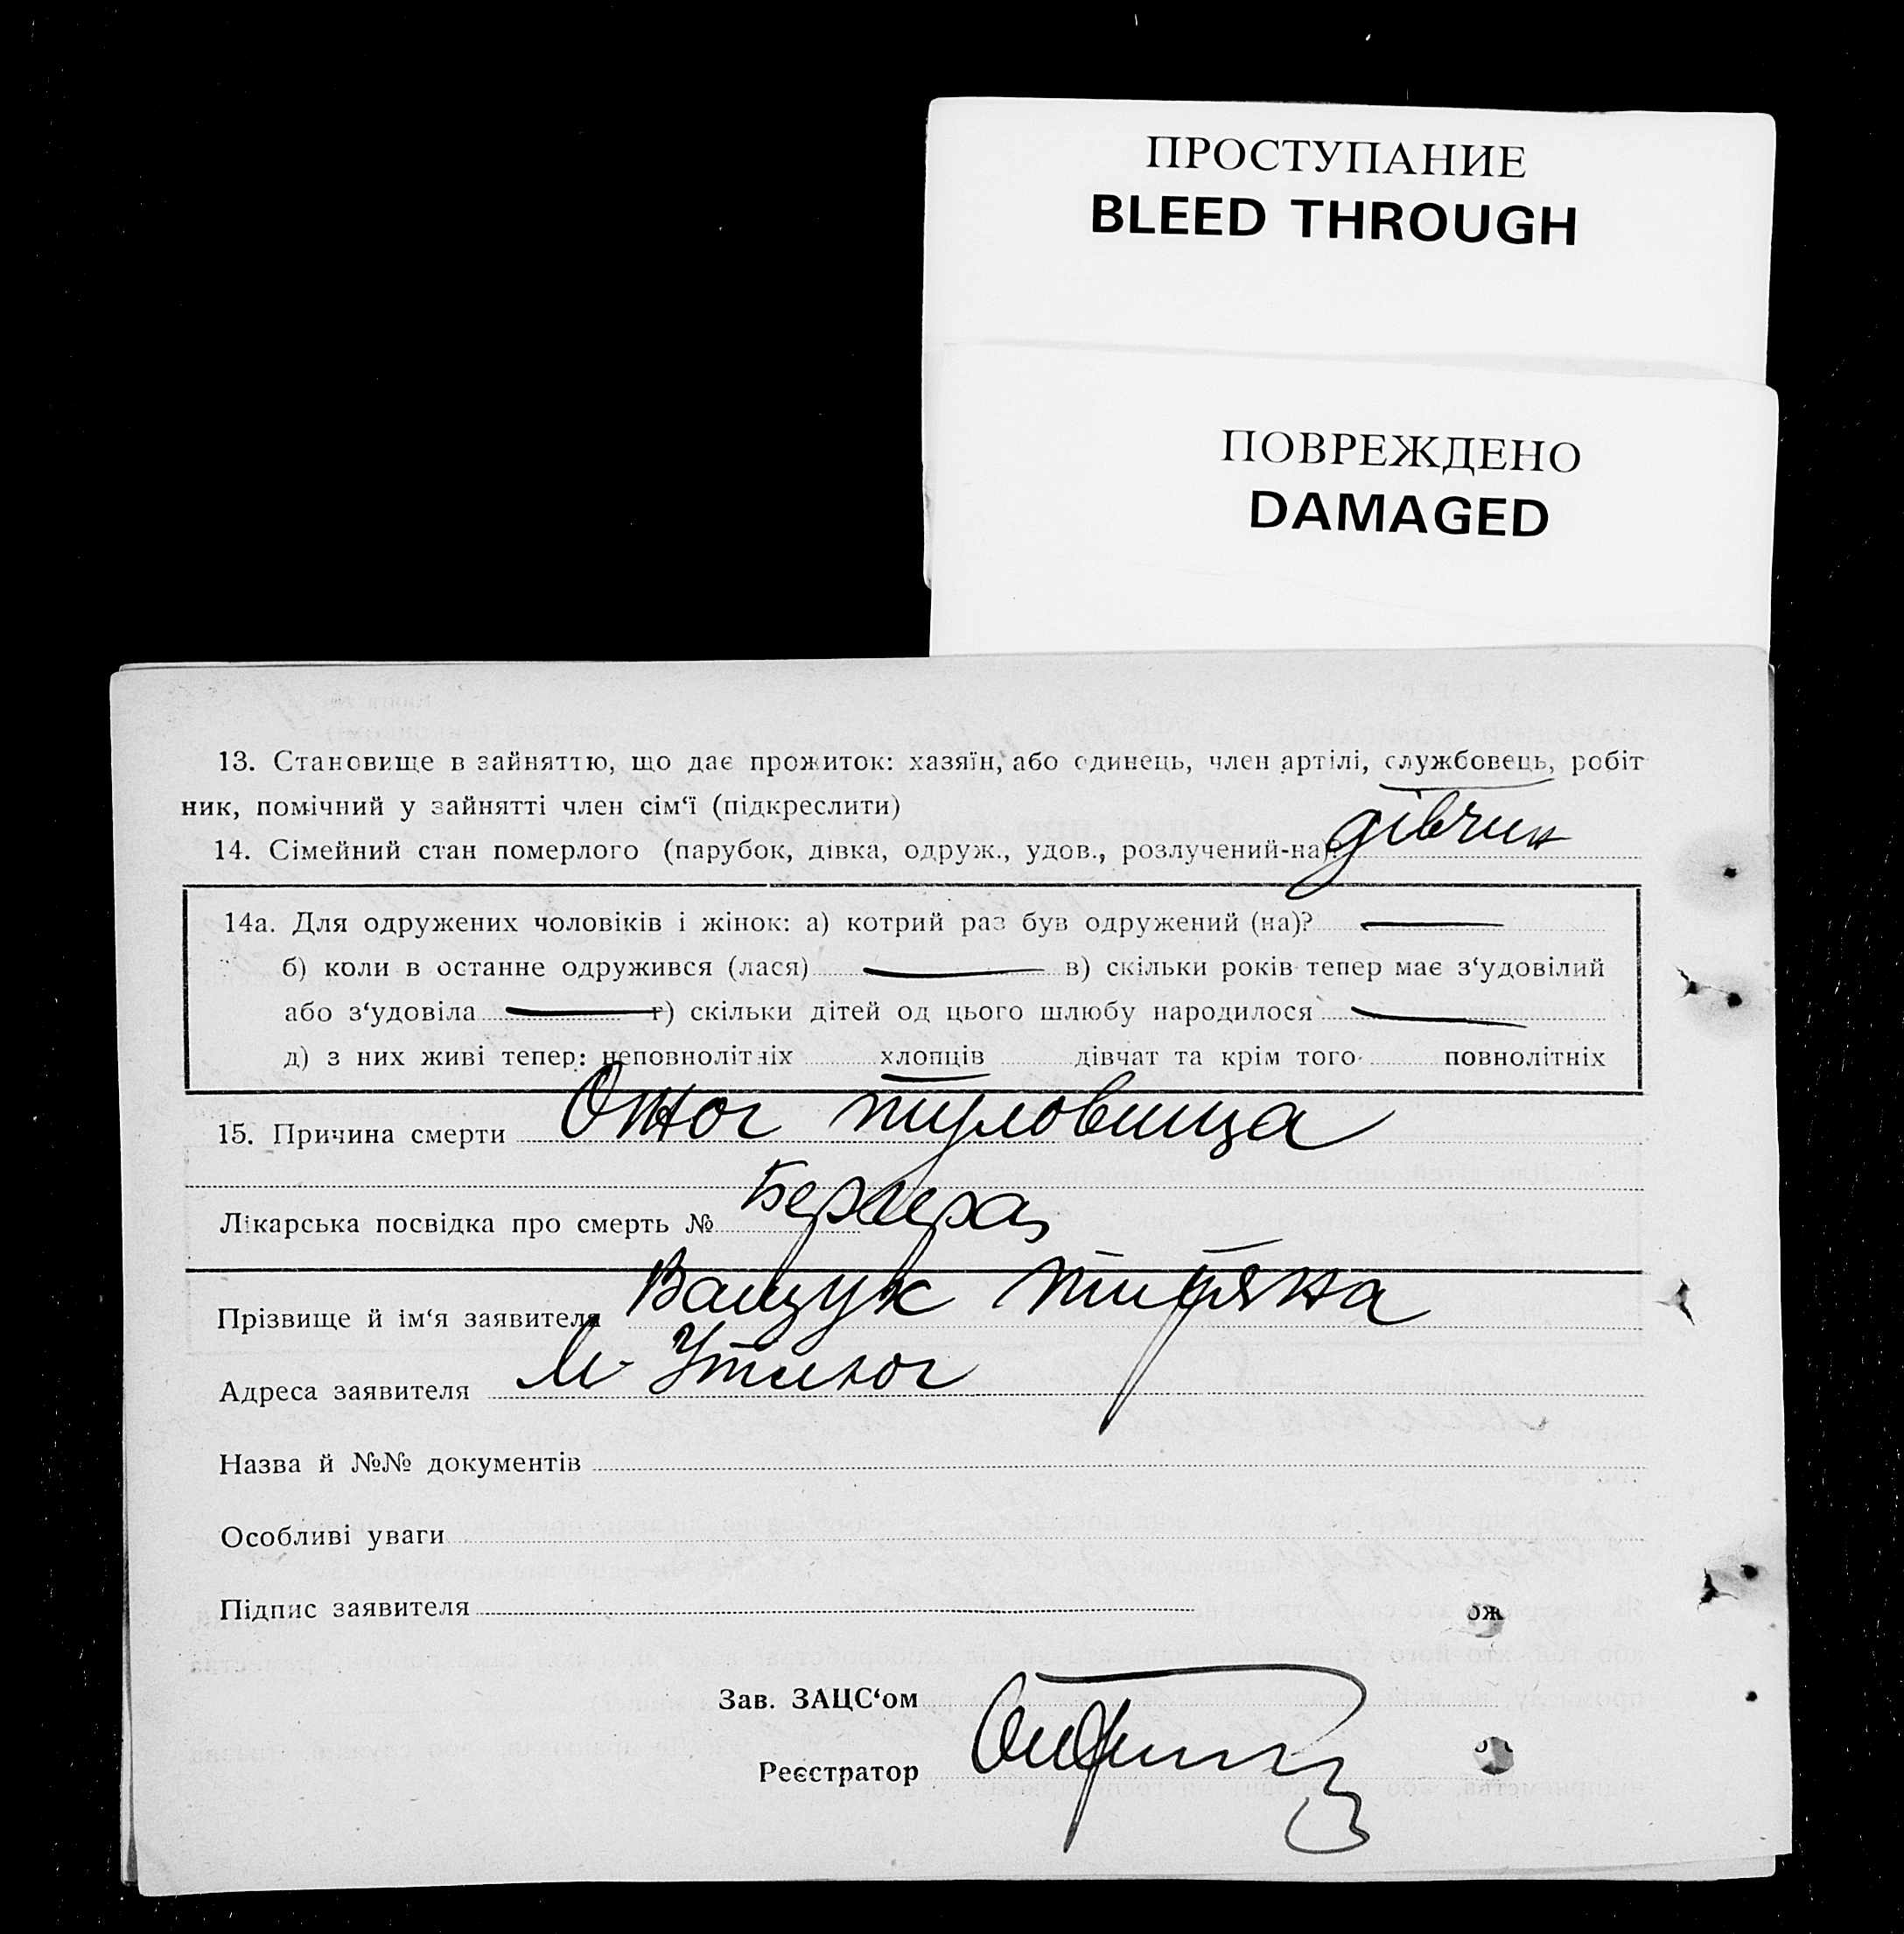 ПРОСТУПАНИЕ
BLEED THROUGH
ПОВРЕЖДЕНО
DAMAGED
13. Становище в зайняттю, що дає прожиток: хазяїн, або одинець, член артілі, службовець, робіт
ник, помічний у зайнятті член сім‘ї (підкреслити)
14. Сімейний стан померлого (парубок, дівка, одруж., удов., розлучений-на)
14а. Для одружених чоловіків і жінок: а) котрий раз був одружений (на)?
б) коли в останне одружився (лася) в) скільки років тепер має з‘удовілий
або з‘удовіла г) скільки дітей од цього шлюбу народилося
д) з них живі тепер: неповнолітніх хлопців дівчат та крім того повнолітніх
15. Причина смерти Ожог туловища
Лікарська посвідка про смерть №
Прізвище й ім‘я заявителя Ващук
Адреса заявителя м
Назва й №№ документів
Особливі уваги
Підпис заявителя
ож
Зав. ЗАЦС‘ом
Реєстратор